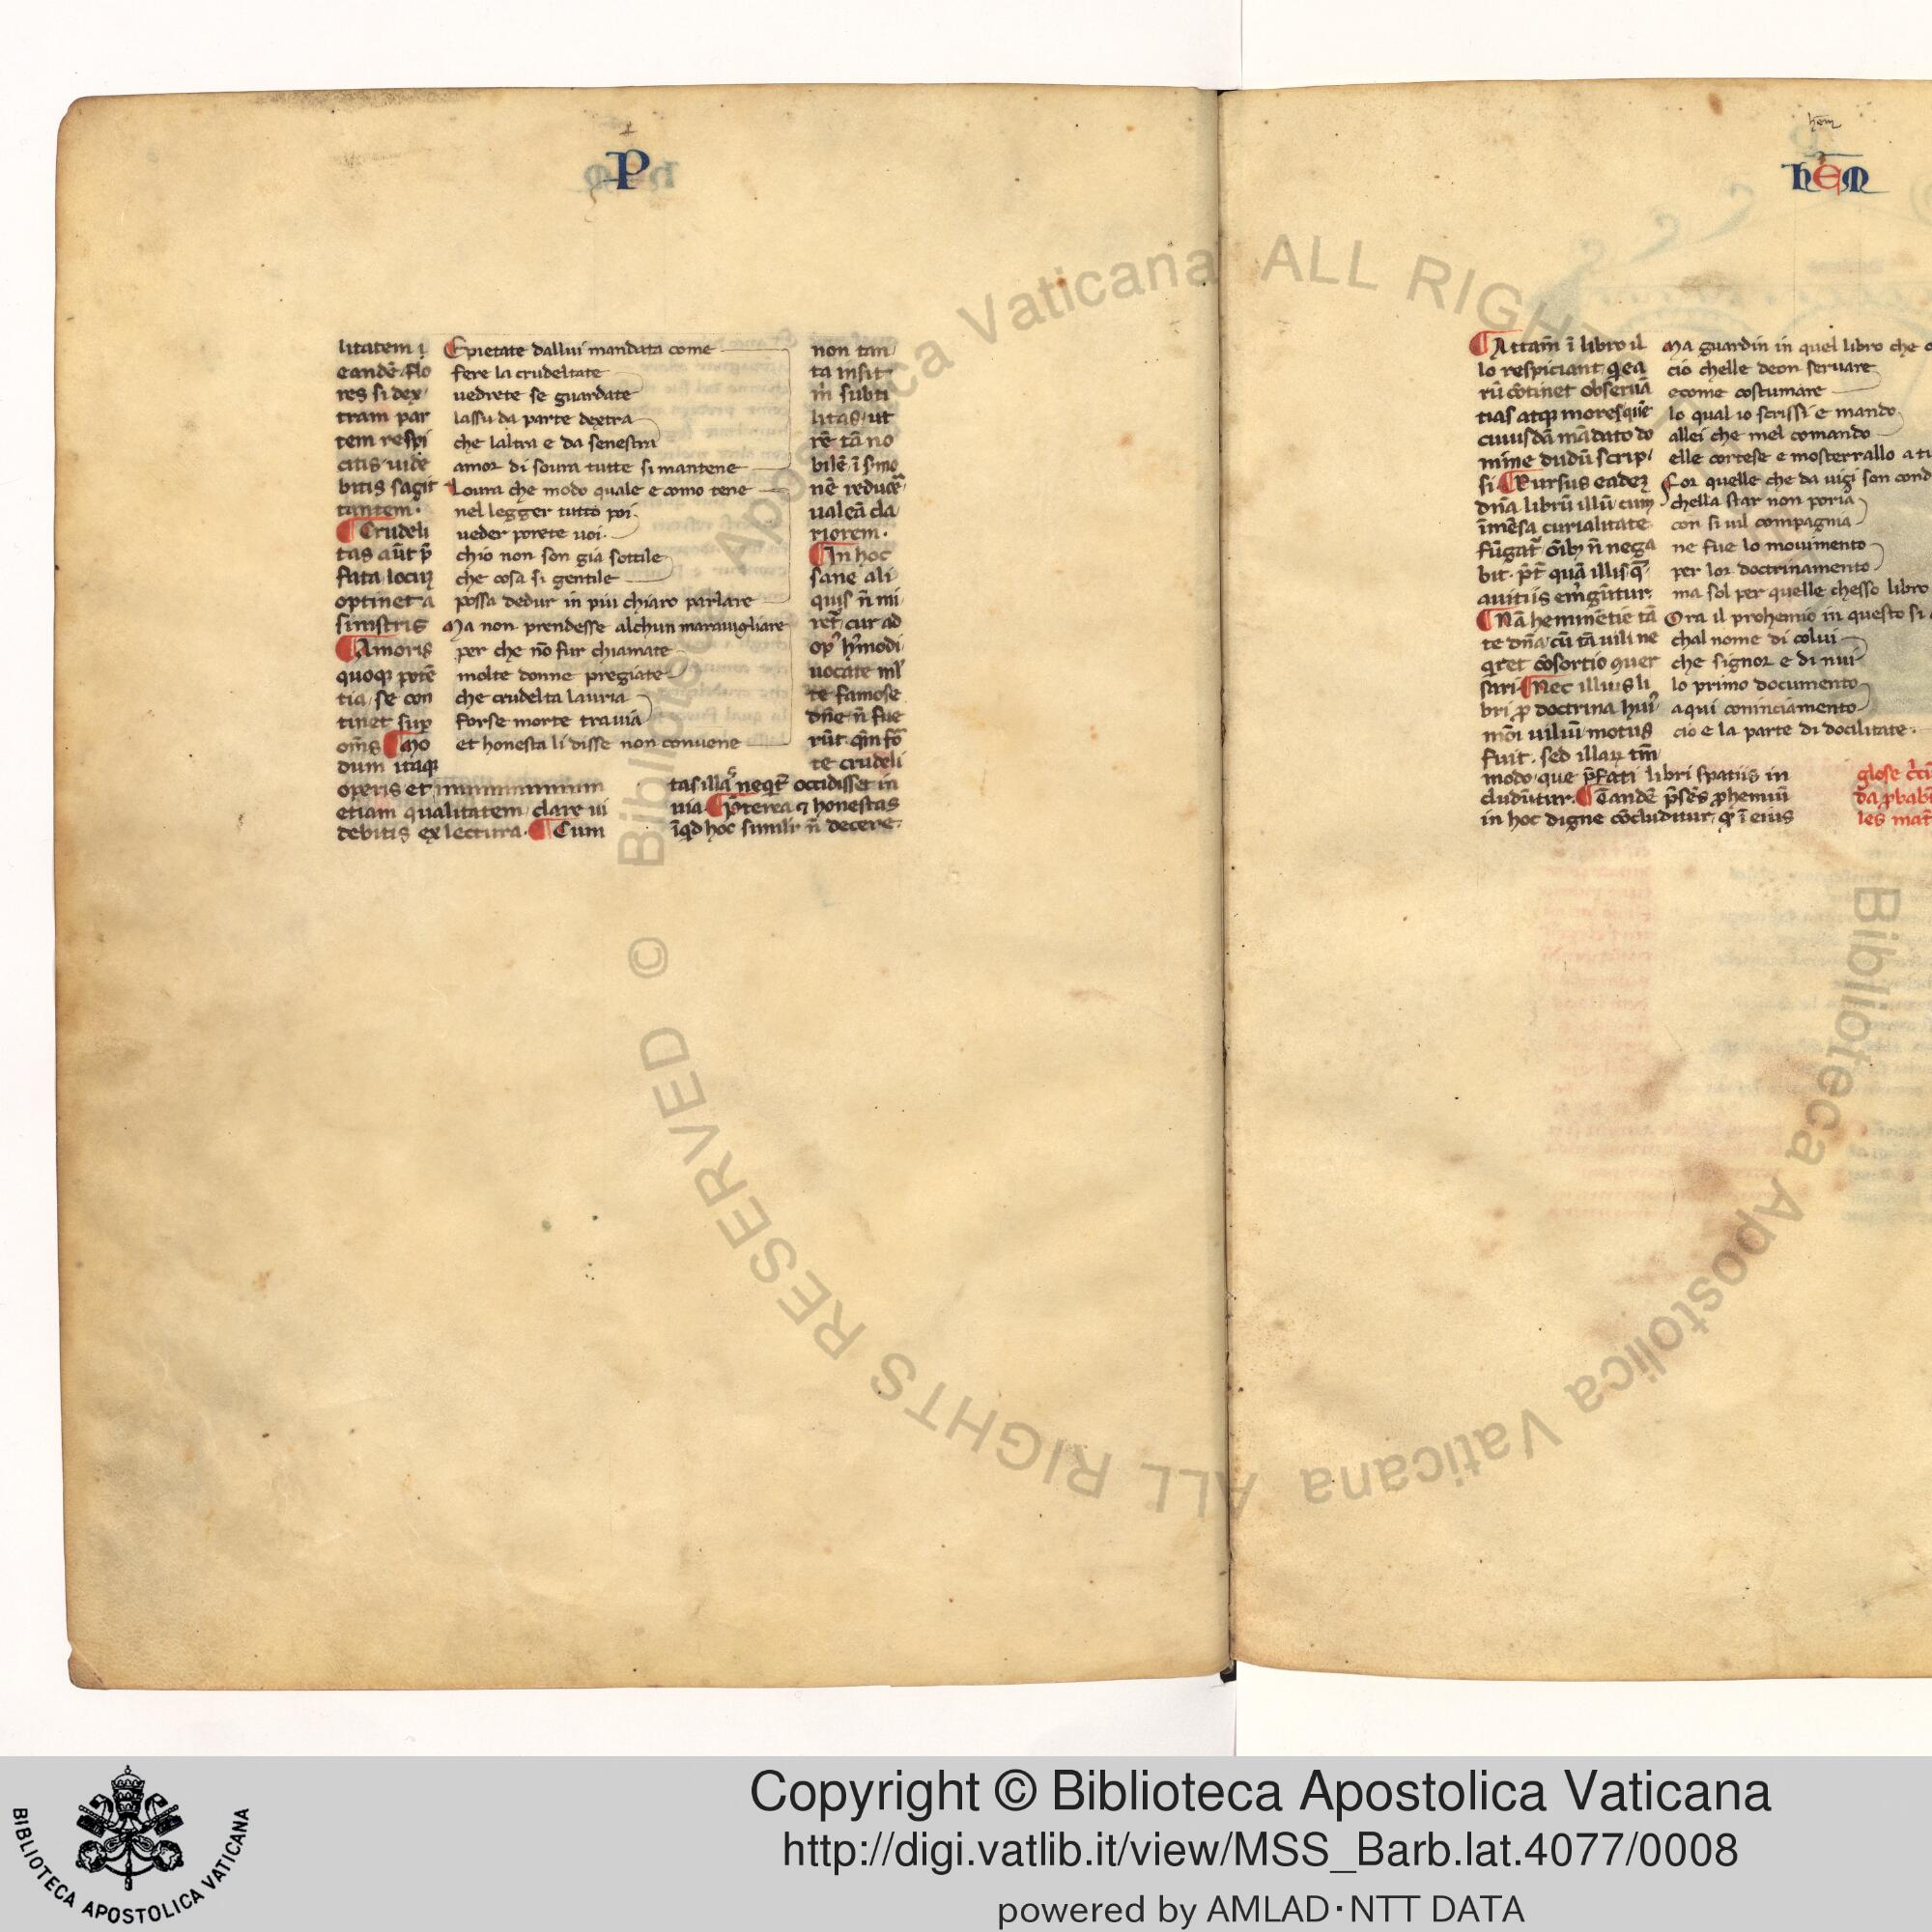 P
litatem i
eandē. flo
res si dex/
tram par
tem respi
citis. uide
bitis sagit
tantem.
¶ Crudeli
tas aūt p̄
fata. locuʒ
optinet a
sinistris
¶ Amoris
quoqꝫ potē
tia, se con
tinet suꝑ
om̄s ¶ Mo
dum itaqꝫ
operis et
etiam qualitatem, clare ui
debitis ex lectura. ¶ Cum
Epietate dallui mandata come
fere la crudeltate
uedrete se guardate
lassu da parte dextra
che laltra e da senestra
amor di soura tutte si mantene
Loura che modo quale e como tene
nel legger tutto poi
ueder potete uoi.
chio non son gia sottile
che cosa si gentile
possa dedur in piu chiaro parlare
Ma non prendesse alchun marauigliare
per che nō fur chiamate
molte donne pregiate
che crudelta lauria
forse morte tra uia
et honesta li disse non conuene
non tan/
ta insit
m̓ subti
litas, ut
rē tā no
bilē, ī smo
nē reducē
ualeā cla
riorem.
¶ In hoc
sane ali
quis n̄ mi
ret̄, cur ad
op̓ hm̓odi
uocate ml̓
te famose
dn̄e n̄ fue
rūt. qm̄ fo
te crudeli
tas illaꝫ neqt̄ occidisset in
uia ¶ P̄terea ⁊ honestas
īqd hoc simili n̄ decere.
hēm
HEM
¶ Attam̄ ī libro il
lo respiciant, q̄ ea
rū cōtinet obseruā
tias atqꝫ mores, quē
cuiusdā mādato do
mine dudū scrip/
si ¶ Rursus eadeʒ
dn̄a librū illū, cum
īmēsa curialitate
n̄ nega
bit. qua illis q̄
auitiis
¶ Nā hem mētie tā
te dn̄a, cū tā uili ne
consortio quer
sari ¶ Nec illius li
bri ꝓ doctrina hui
uiliū, motus
fuit. sed illaꝝ tm̄
modo, que p̄fati libri spatiis in
cludūtur. ¶ Tandē p̄sēs ꝓhemiū
in hoc digne cōcluditur, ī eius
Ma guardin in quel libro che
cio chelle deon seruare
ecome costumare
lo qual io scrissi e mando
allei che mel comando
elle cortese e mosterrallo a tu
For quelle che da uigi son cond
chella star non poria
con si uil compagnia
ne fue lo mouimento
per lor doctrinamento
ma sol per quelle chesso libro
Ora il prohemio in questo si
chal nome di colui
che signor e di nui
lo primo documento
a qui cominciamento
cio e la parte di docilitate.
glose
da
les
© Biblioteca Apostolica Vaticana ALL RIGHTS
Biblioteca Apostolica Vaticana ALL RIGHTS RESERVED
BIBLIOTECA APOSTOLICA VATICANA
Copyright © Biblioteca Apostolica Vaticana
http://digi.vatlib.it/view/MSS_Barb.lat.4077/0008
powered by AMLAD·NTT DATA